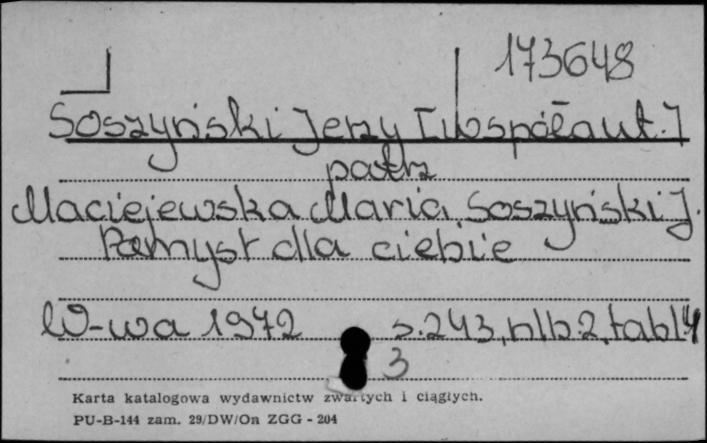 173648
Soszyński Jerzy [współaut.]
patrz
Maciejewska Maria, Soszyński J.
Pomysł dla ciebie
W-wa 1972 s.243, nlb.2, tabl.4
3
Karta katalogowa wydawnictw zwartych i ciągłych.
PU-B-144 zam. 29/DW/On ZGG - 204